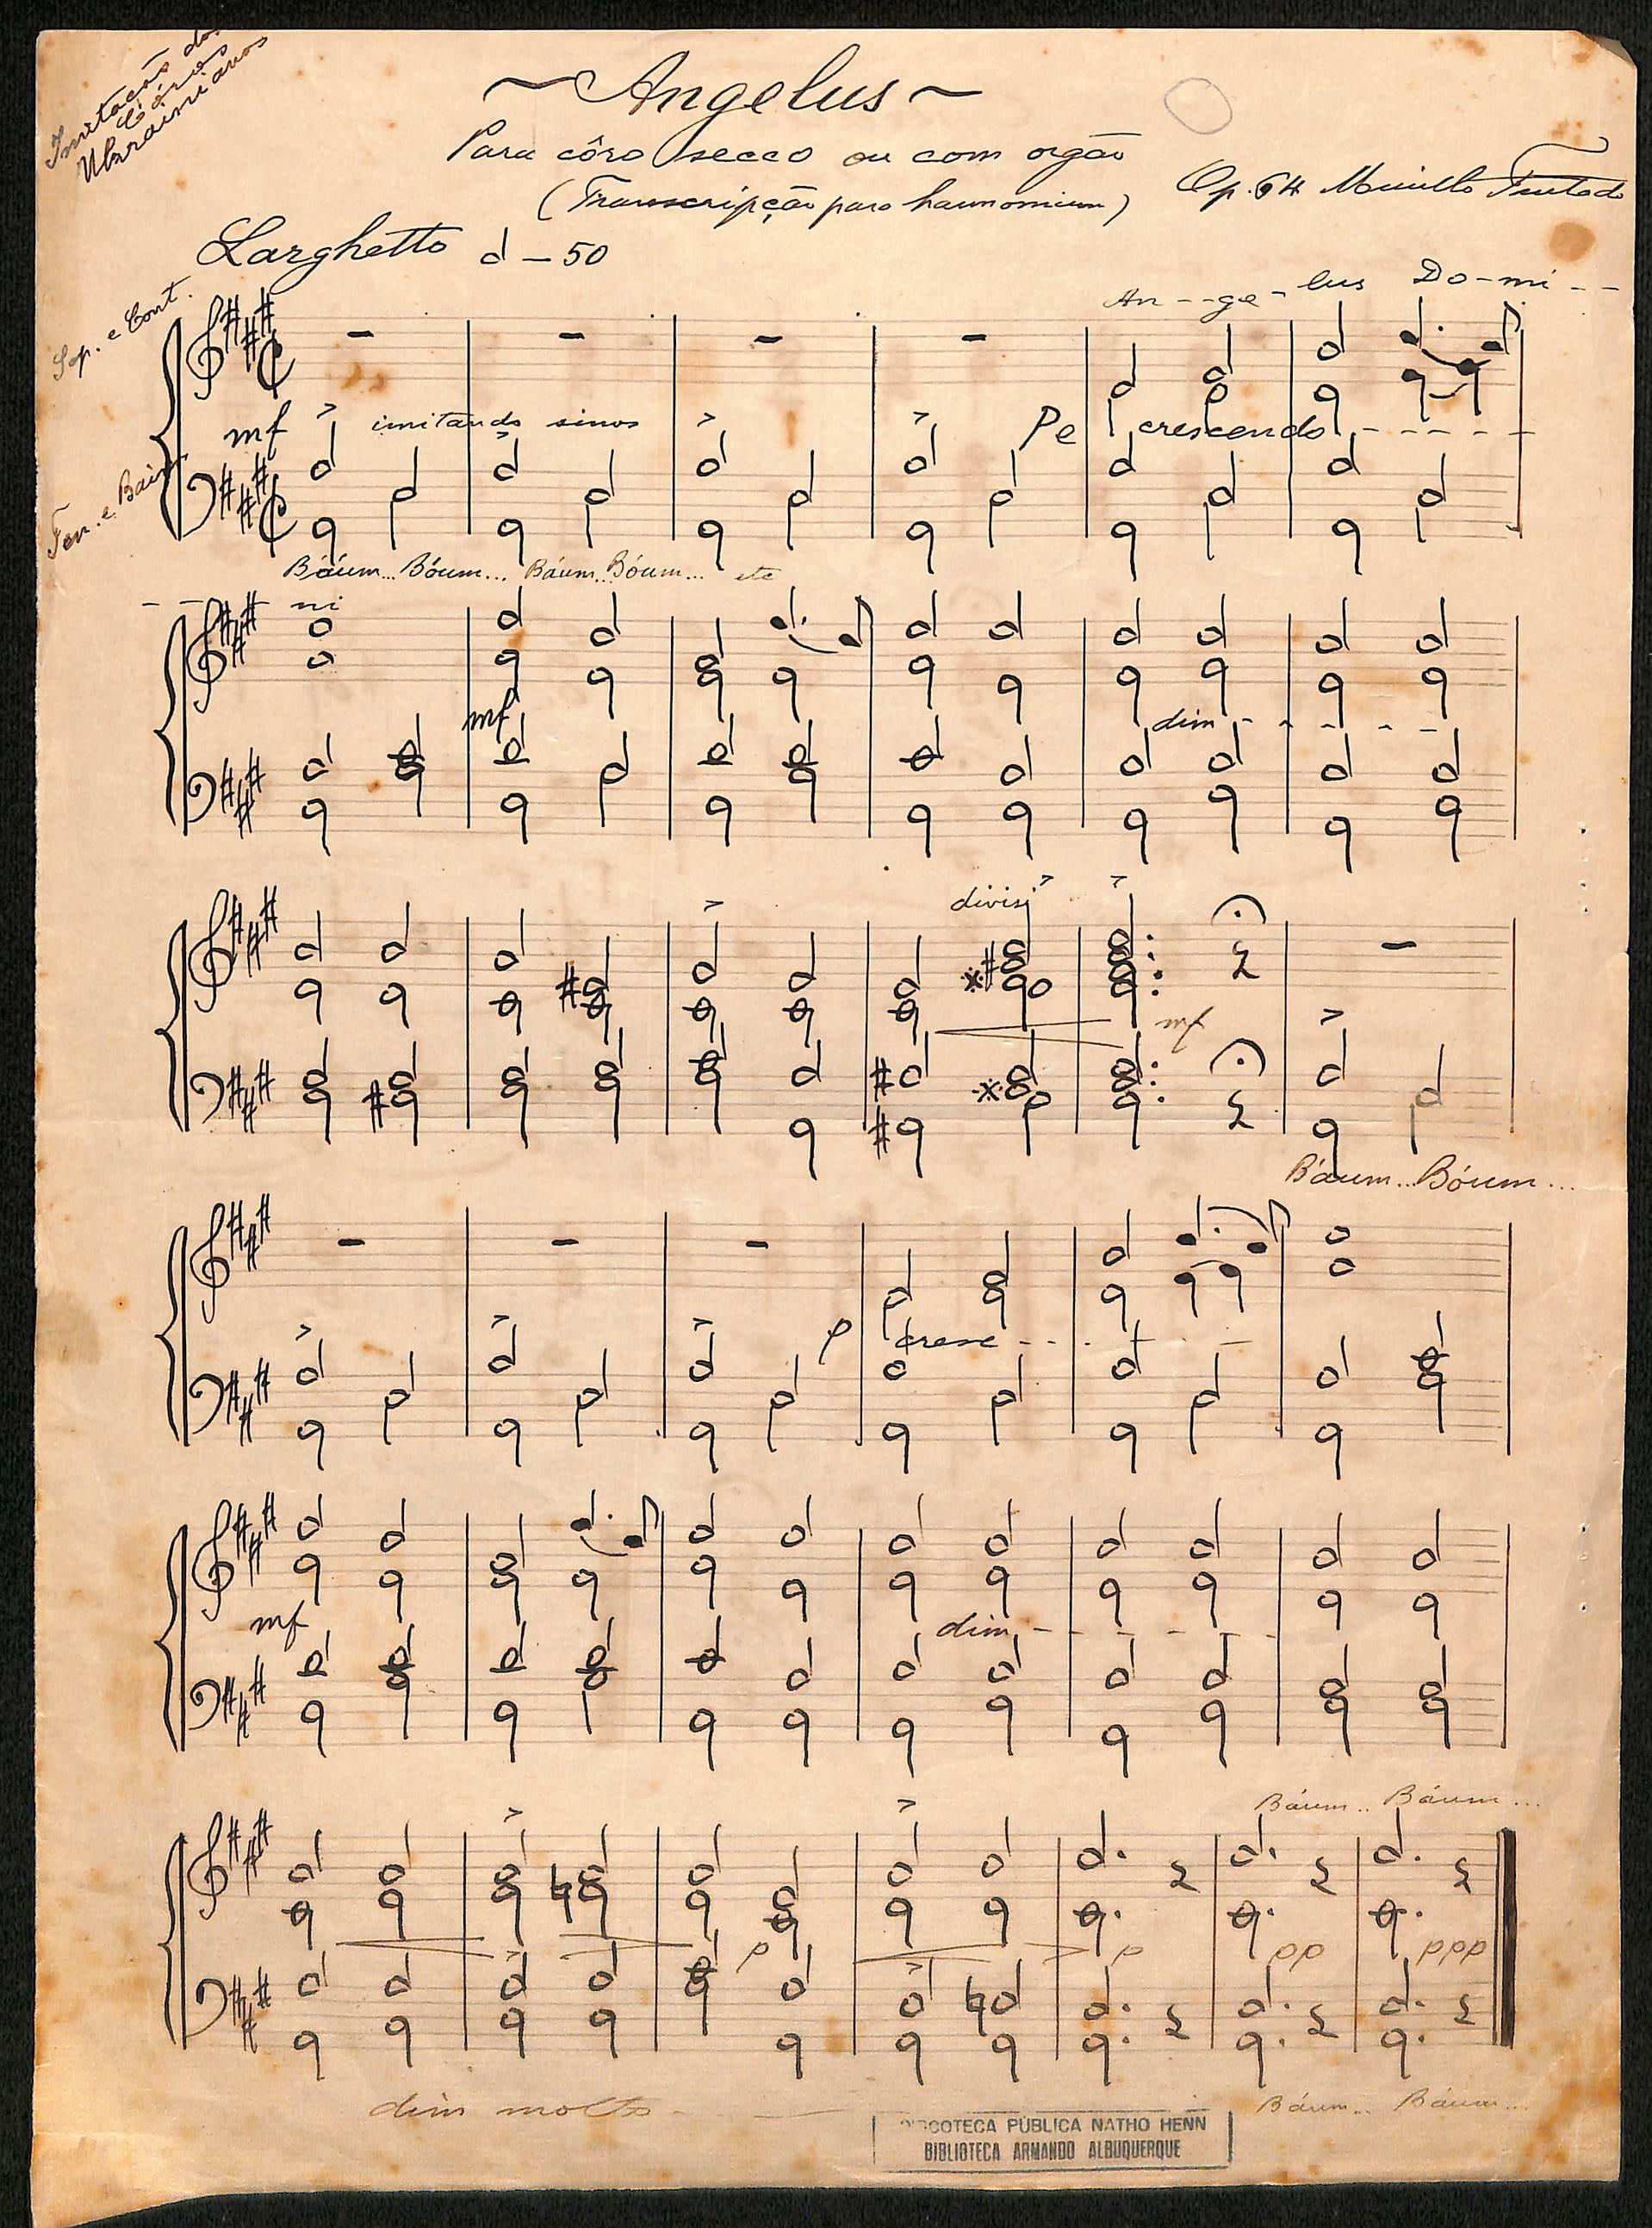 Imitação dos
Córos
Ukrainianos
~ Angelus ~
Para côro secco ou com orgão
(Transcripção para harmonium)
Op. 64 Murillo Furtado
Larghetto d – 50
An - - ge - lus Do - mi - -
Sop. e Cont.
mf imitando sinos
P e crescendo - - - - - -
Ten. e Baixo
Báum... Bóum... Báum.. Bóum... etc
- - - ni
mf
dim - - - - - -
divisi
mf
Báum... Bóum...
p cresc - - - - - -
mf
dim - - - - - -
Báum.. Báum...
p
p
pp
ppp
dim molto - - -
Báum.. Báum...
DISCOTECA PÚBLICA NATHO HENN
BIBLIOTECA ARMANDO ALBUQUERQUE